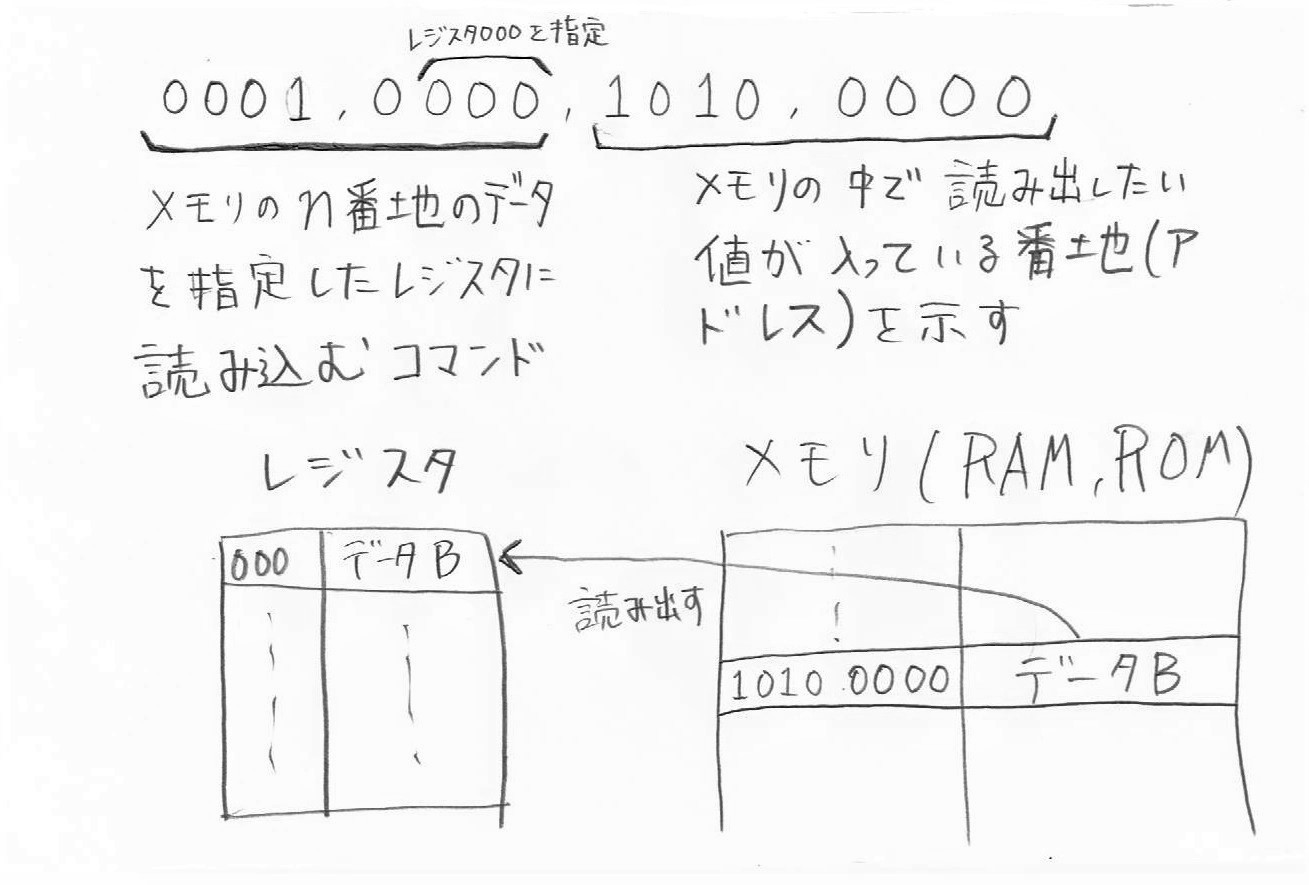 レジスタ000を指定
0001,0000,1010,0000
メモリのn番地のデータ
を指定したレジスタに
読み込むコマンド
メモリの中で読み出したい
値が入っている番地(ア
ドレス)を示す
レジスタ
メモリ(RAM,ROM)
000 データB
読み出す
1010 0000 データB